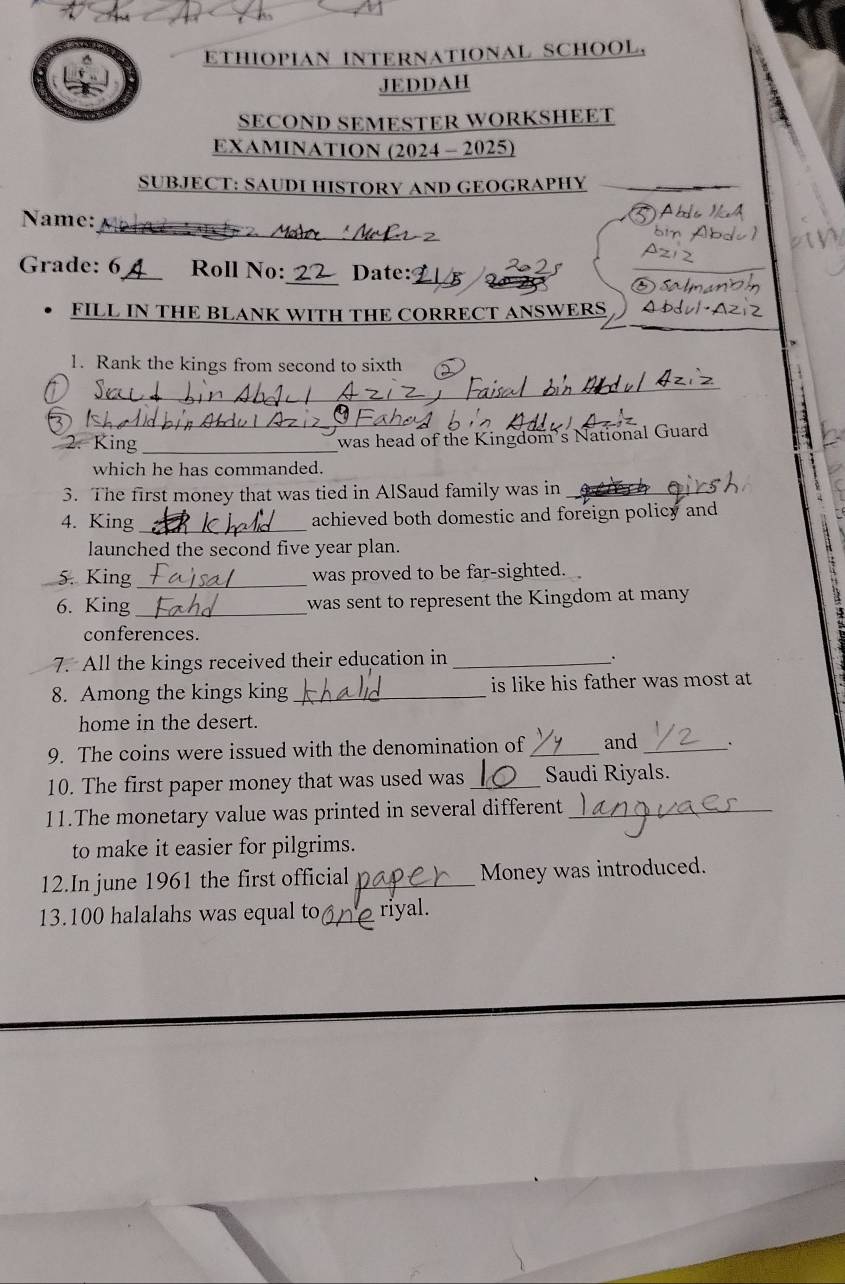 ETHIOPIAN INTERNATIONAL SCHOOL,
JEDDAH
SECOND SEMESTER WORKSHEET
EXAMINATION (2024 – 2025)
SUBJECT: SAUDI HISTORY AND GEOGRAPHY
Name:
Grade: 6 A Roll No: 22 Date: 21/5/2025
⑤ Abdullah
bin Abdul
Aziz
⑥ Salman bin
Abdul-Aziz
• FILL IN THE BLANK WITH THE CORRECT ANSWERS
1. Rank the kings from second to sixth
① Saud bin Abdul Aziz, ② Faisal bin Abdul Aziz
③ Khalid bin Abdul Aziz, ④ Fahad bin Abdul Aziz
2. King was head of the Kingdom's National Guard
which he has commanded.
3. The first money that was tied in AlSaud family was in girsh
4. King Khalid achieved both domestic and foreign policy and
launched the second five year plan.
5. King Faisal was proved to be far-sighted.
6. King Fahd was sent to represent the Kingdom at many
conferences.
7. All the kings received their education in .
8. Among the kings king khalid is like his father was most at
home in the desert.
9. The coins were issued with the denomination of 1/4 and 1/2.
10. The first paper money that was used was 10 Saudi Riyals.
11.The monetary value was printed in several different languaes
to make it easier for pilgrims.
12.In june 1961 the first official paper Money was introduced.
13.100 halalahs was equal to one riyal.